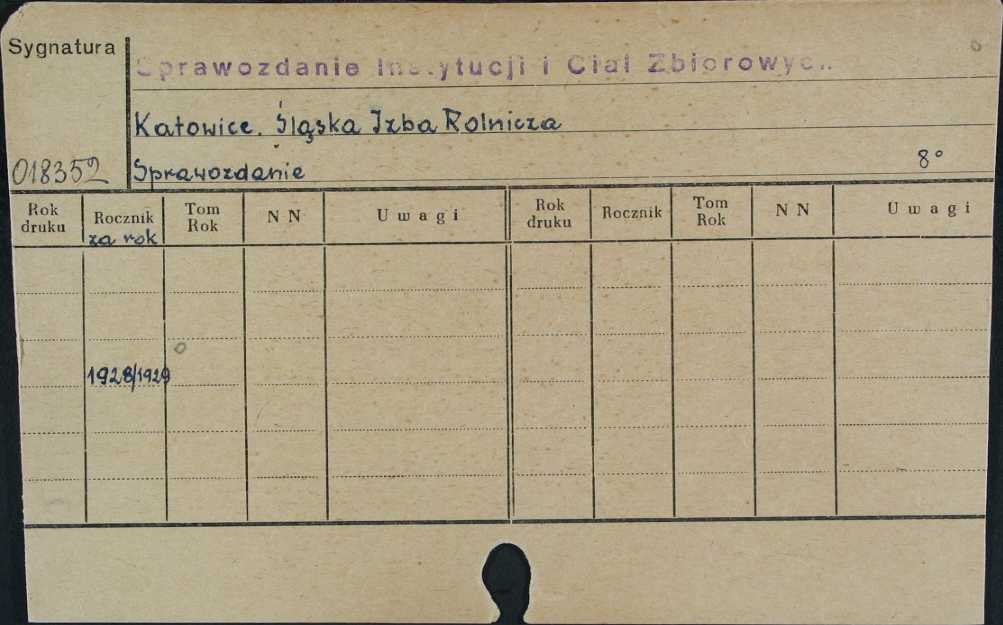 Sygnatura
Sprawozdanie Instytucji i Ciał Zbiorowych
Katowice. Śląska Izba Rolnicza
018352 Sprawozdanie 8°
Rok druku Rocznik za rok Tom Rok N N Uwagi Rok druku Rocznik Tom Rok N N Uwagi
1928/1929